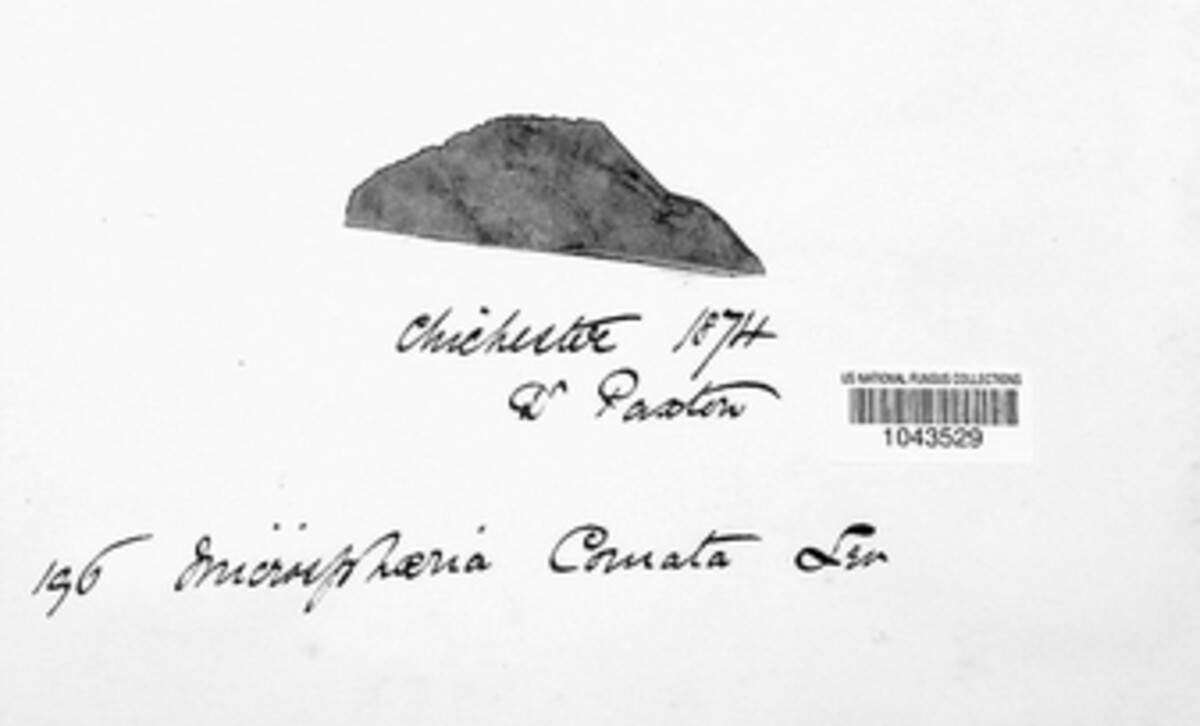 Chichester 1874
Dr Paxton
US NATIONAL FUNGUS COLLECTIONS
1043529
196 Microsphæria Comata Lev